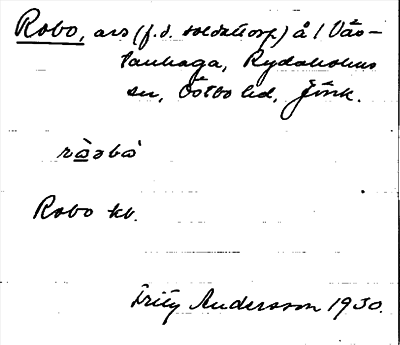 Robo, avs (f.d. soldattorp) å 1 Väs-
tanhaga, Rydaholms
sn, Östbo hd, Jönk.
ràəbò
Robo kb.
Fritz Andersson 1930.